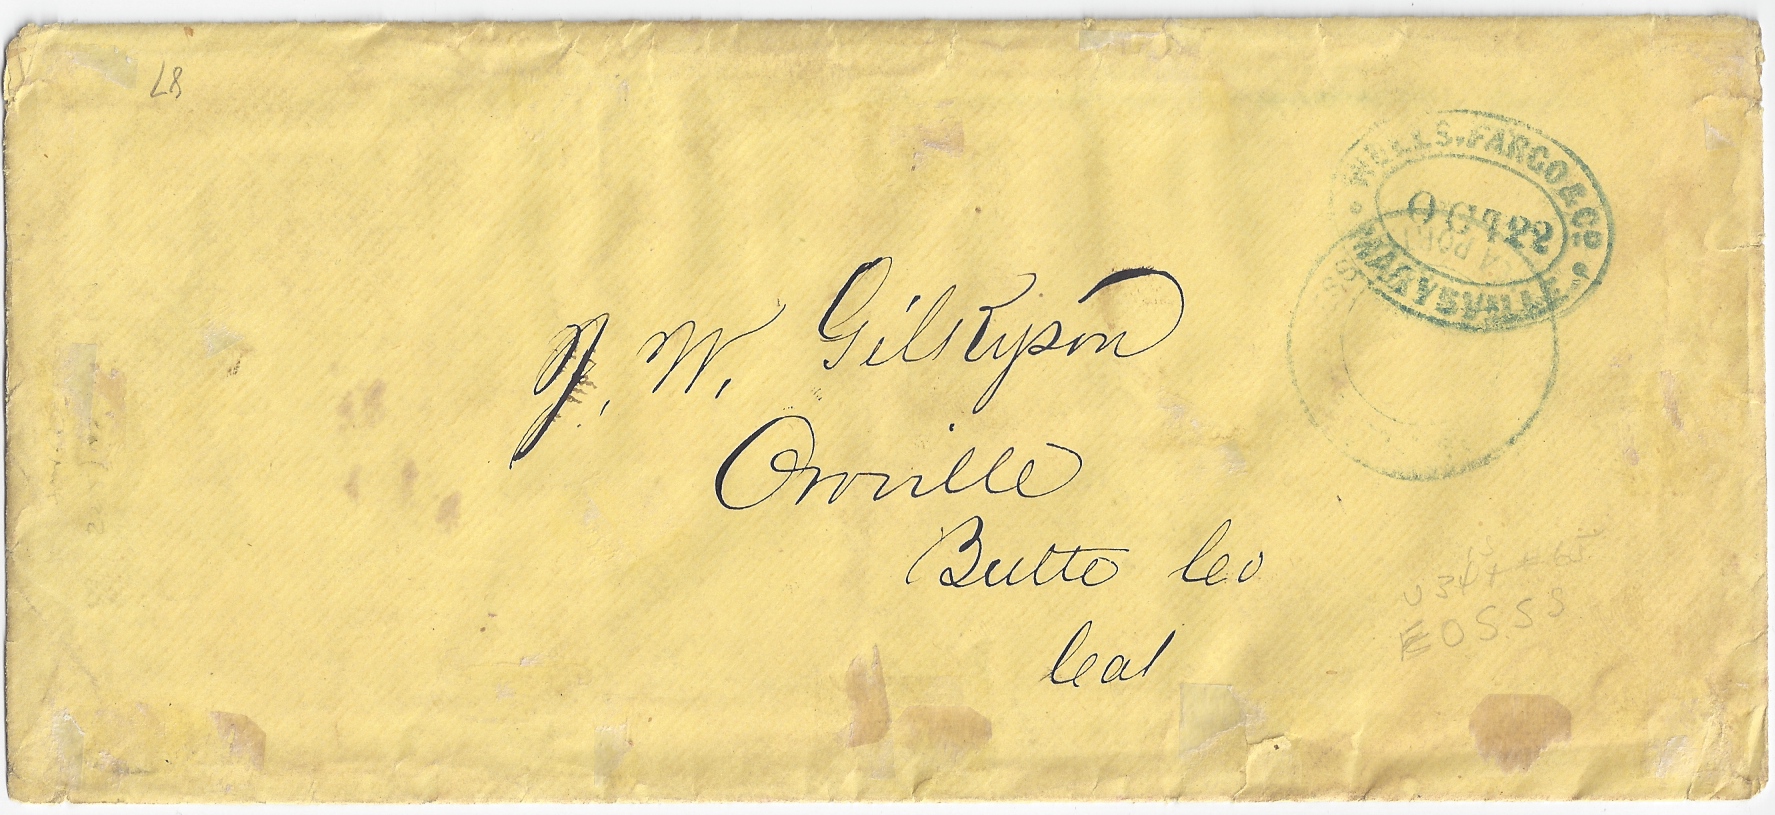 L8
WELLS, FARGO & CO
OCT 22
MARYSVILLE
J. W. Gilkyson
Oroville
Butte Co
Cal